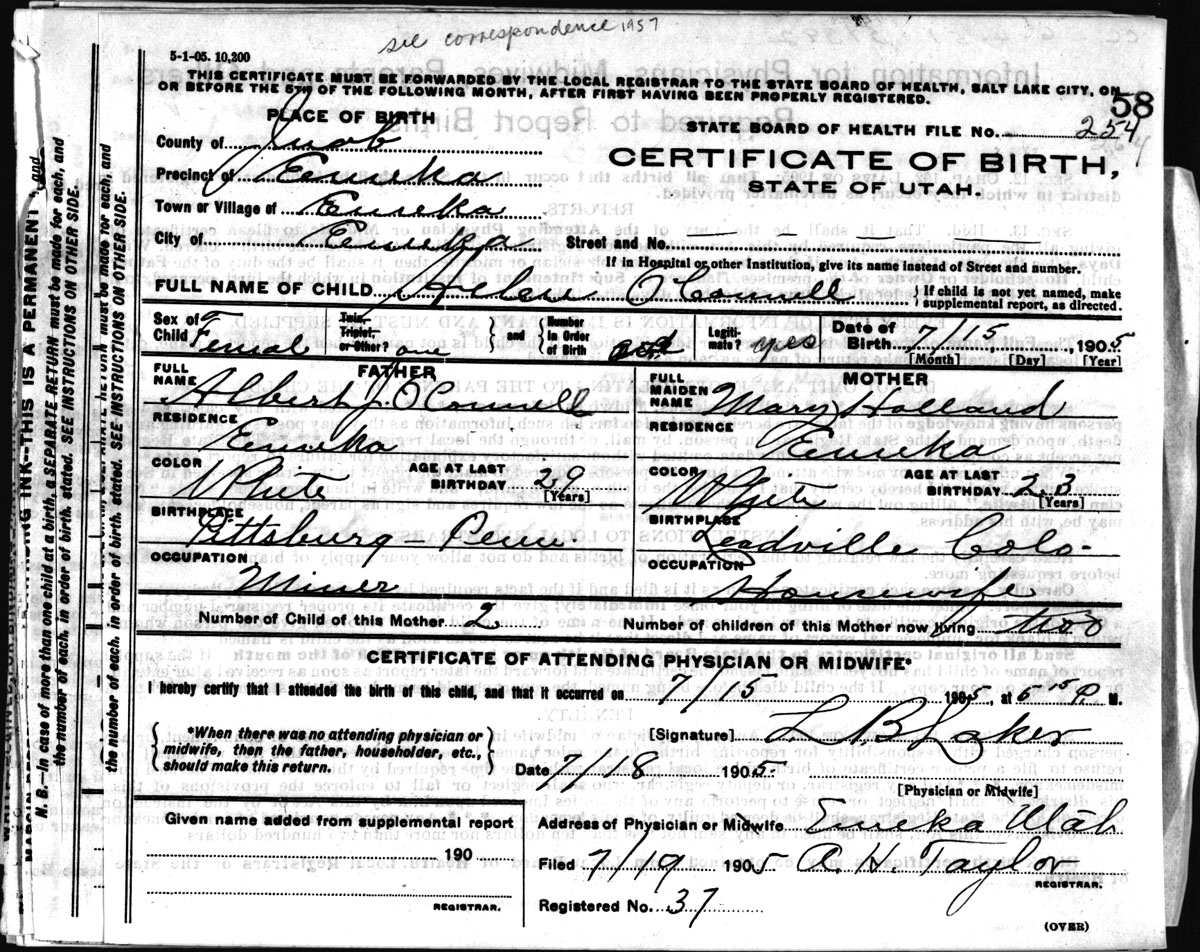 see correspondence 1957
5-1-05. 10,200
THIS CERTIFICATE MUST BE FORWARDED BY THE LOCAL REGISTRAR TO THE STATE BOARD OF HEALTH, SALT LAKE CITY, ON
OR BEFORE THE 5TH OF THE FOLLOWING MONTH, AFTER FIRST HAVING BEEN PROPERLY REGISTERED.
58
PLACE OF BIRTH
STATE BOARD OF HEALTH FILE No. 254
County of Juab
CERTIFICATE OF BIRTH,
Precinct of Eureka
STATE OF UTAH.
Town or Village of Eureka
City of Eureka Street and No.
If in Hospital or other Institution, give its name instead of Street and number.
FULL NAME OF CHILD Helen O'Connell } If child is not yet named, make supplemental report, as directed.
Sex of Child Femal Twin, Triplet, or Other? one } and { Number in Order of Birth Legiti-mate? yes Date of Birth 7/15, 1905
[Month] [Day] [Year]
FATHER MOTHER
FULL NAME Albert J. O'Connell FULL MAIDEN NAME Mary Holland
RESIDENCE Eureka RESIDENCE Eureka
COLOR White AGE AT LAST BIRTHDAY 29 [Years] COLOR White AGE AT LAST BIRTHDAY 23 [Years]
BIRTHPLACE Pittsburg Penn BIRTHPLACE Leadville Colo-
OCCUPATION Miner OCCUPATION Housewife
Number of Child of this Mother 2 Number of children of this Mother now living two
CERTIFICATE OF ATTENDING PHYSICIAN OR MIDWIFE*
I hereby certify that I attended the birth of this child, and that it occurred on 7/15 1905, at 5 15 P M.
{ *When there was no attending physician or midwife, then the father, householder, etc., should make this return. }
[Signature] L. B. Laker
Date 7/18 1905
[Physician or Midwife]
Given name added from supplemental report
190
REGISTRAR.
Address of Physician or Midwife Eureka Utah
Filed 7/19 1905 A. H. Taylor
REGISTRAR.
Registered No. 37
(OVER)
N. B. In case of more than one child at a birth, a SEPARATE RETURN must be made for each, and
the number of each, in order of birth, stated. SEE INSTRUCTIONS ON OTHER SIDE.